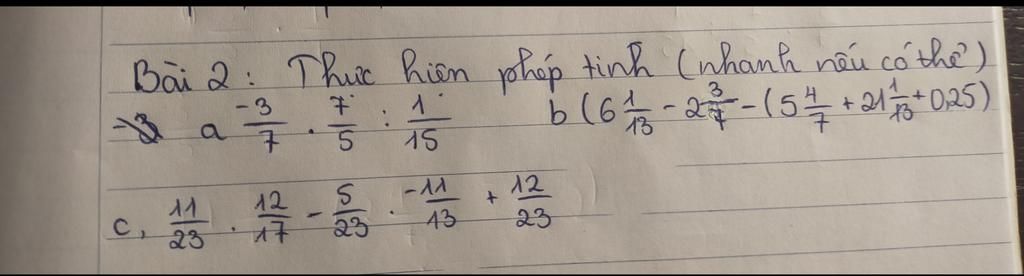 Bài 2: Thực hiện phép tính (nhanh nếu có thể)
a $\frac{-3}{7} \cdot \frac{7}{5} : \frac{1}{15}$ b $(6\frac{1}{13} - 2\frac{3}{7} - (5\frac{4}{7} + 21\frac{1}{13} + 0,25)$
c, $\frac{11}{23} \cdot \frac{12}{17} - \frac{5}{23} \cdot \frac{-11}{13} + \frac{12}{23}$